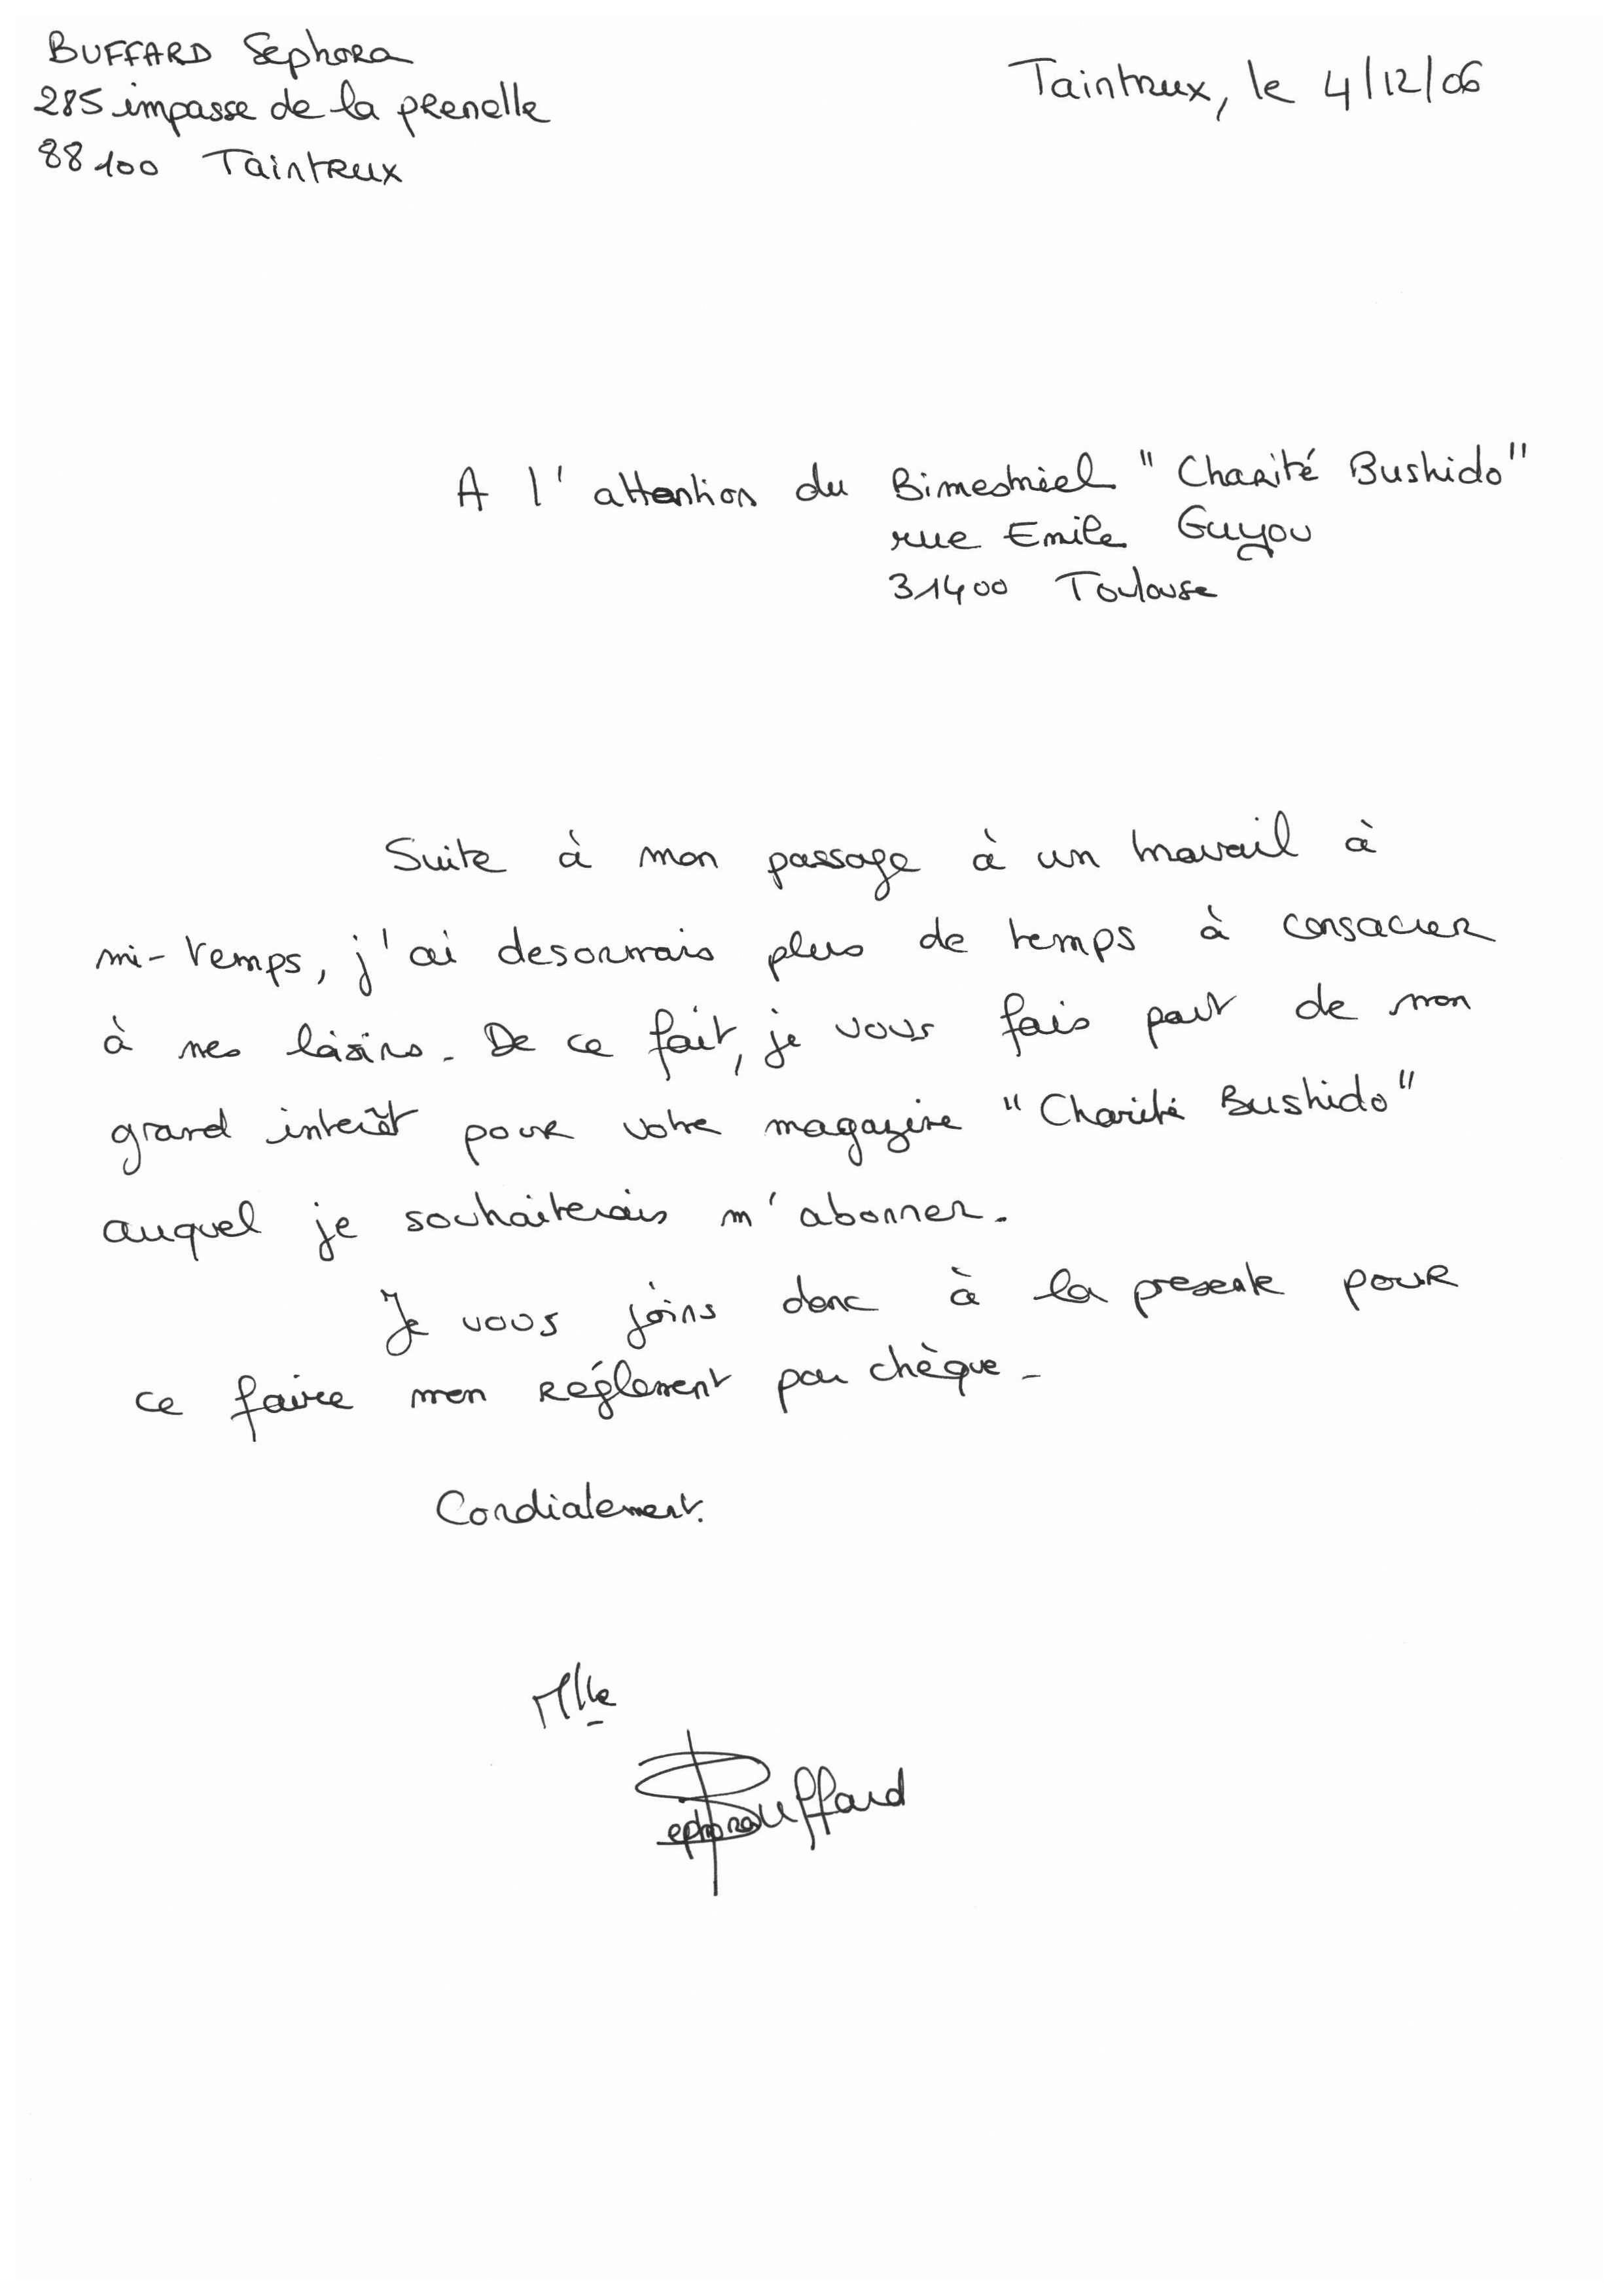 BUFFARD Sephora
285 impasse de la prenelle
88100 Taintrux
Taintrux, le 4/12/06
A l'attention du Bimestriel "Charité Bushido"
rue Emile Guyou
31400 Toulouse
Suite à mon passage à un travail à
mi-temps, j'ai desormais plus de temps à consacrer
à mes loisirs. De ce fait, je vous fais part de mon
grand interêt pour votre magazine "Charité Bushido"
auquel je souhaiterais m'abonner.
Je vous joins donc à la presente pour
ce faire mon réglement par chèque.
Cordialement.
Mlle
Sephora Buffard